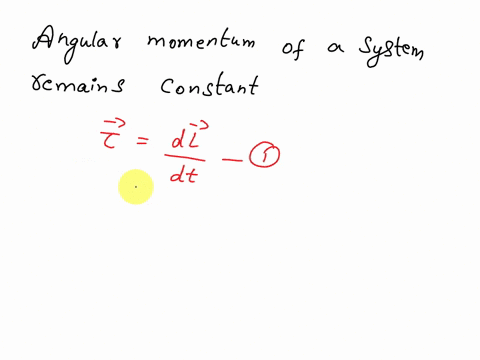 Angular momentum of a system
remains constant
τ⃗ = dL⃗/dt — ①